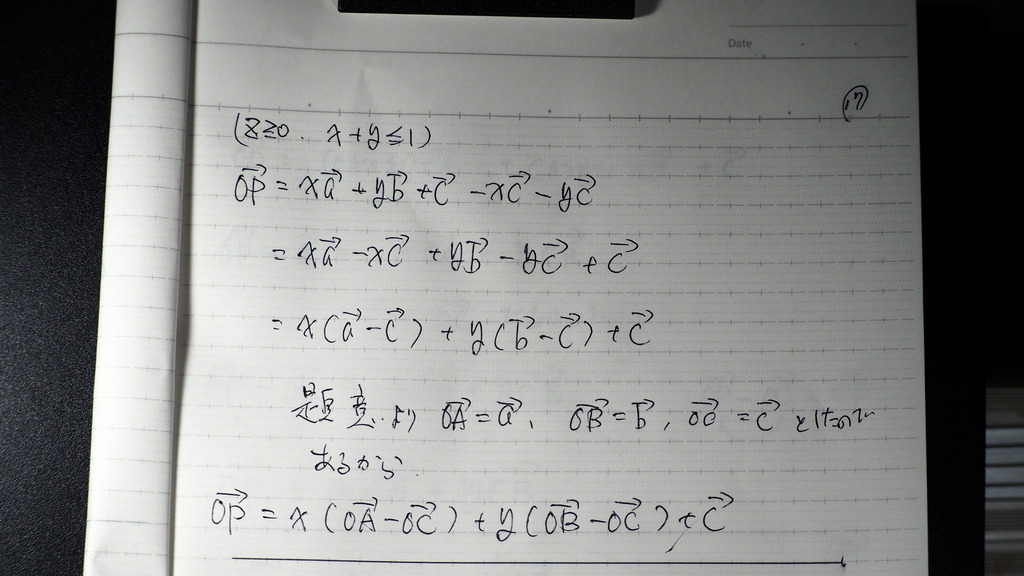 Date
⑰
(z≧0. x+y≦1)
OP→ = xa→ + yb→ + c→ - xc→ - yc→
= xa→ - xc→ + yb→ - yc→ + c→
= x(a→ - c→) + y(b→ - c→) + c→
題意より OA→ = a→, OB→ = b→, OC→ = c→ としたので
あるから.
OP→ = x(OA→ - OC→) + y(OB→ - OC→) + c→